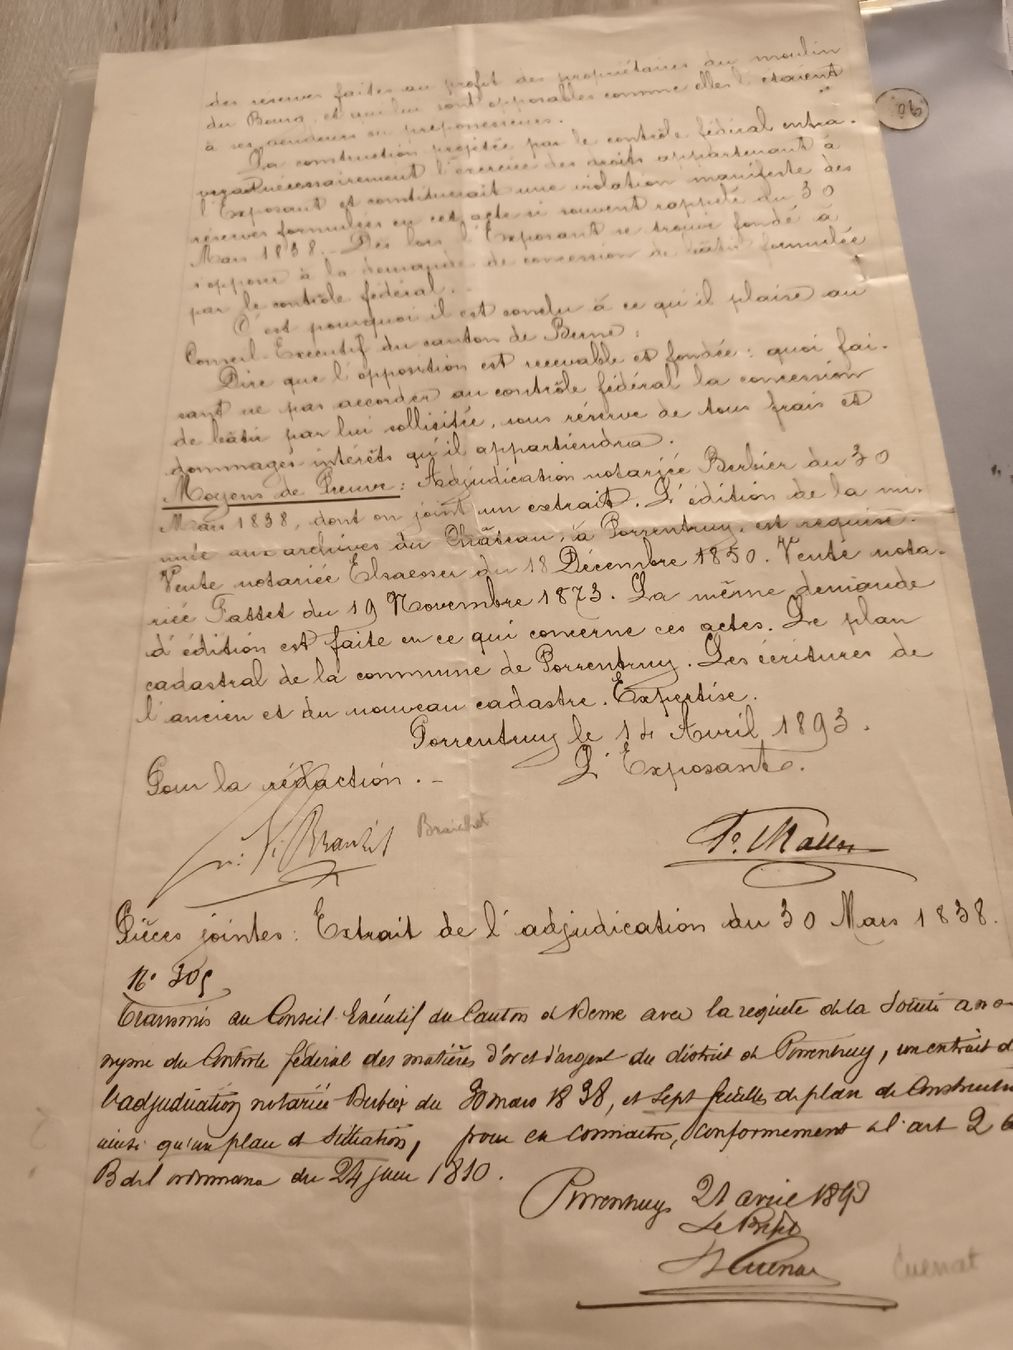 des réserves faites au profit des propriétaires du moulin
du Bourg, et qui lui sont opposables comme elles l'étaient
à ses vendeurs ou prépossesseurs.
La construction projetée par le contrôle fédéral entra-
verait nécessairement l'exercice des droits appartenant à
l'Exposant et constituerait une violation manifeste des
réserves formulées en cet acte si souvent rappelé du 30
Mars 1838. Dès lors l'Exposant se trouve fondé à
s'opposer à la demande de concession de bâtir formulée
par le contrôle fédéral.
C'est pourquoi il est conclu à ce qu'il plaise au
Conseil-Exécutif du canton de Berne :
Dire que l'opposition est recevable et fondée : quoi fai-
sant ne pas accorder au contrôle fédéral la concession
de bâtir par lui sollicitée, sous réserve de tous frais et
dommages-intérêts qu'il appartiendra.
Moyens de Preuve : Adjudication notariée Berbier du 30
Mars 1838, dont on joint un extrait. L'édition de la mi-
nute aux archives du Château, à Porrentruy, est requise.
Vente notariée Elsaesser du 18 Décembre 1850. Vente nota-
riée Fattet du 19 Novembre 1873. La même demande
d'édition est faite en ce qui concerne ces actes. Le plan
cadastral de la commune de Porrentruy. Les écritures de
l'ancien et du nouveau cadastre. Expertise.
Porrentruy le 14 Avril 1893.
Pour la rédaction. -
L'Exposant.
Braichet
Pièces jointes : Extrait de l'adjudication du 30 Mars 1838.
N° 305
Transmis au Conseil Exécutif du Canton de Berne avec la requête de la Société ano-
nyme du Contrôle fédéral des matières d'or et d'argent du district de Porrentruy, un extrait d
l'adjudication notariée du 30 mars 1838, et sept feuilles de plan de Construction
ainsi qu'un plan de situation, pour en connaître, conformément à l'art 2
B de l'ordonnance du 24 juin 1810.
Porrentruy 21 avril 1893
Le Préfet
Cuenat
Cuenat